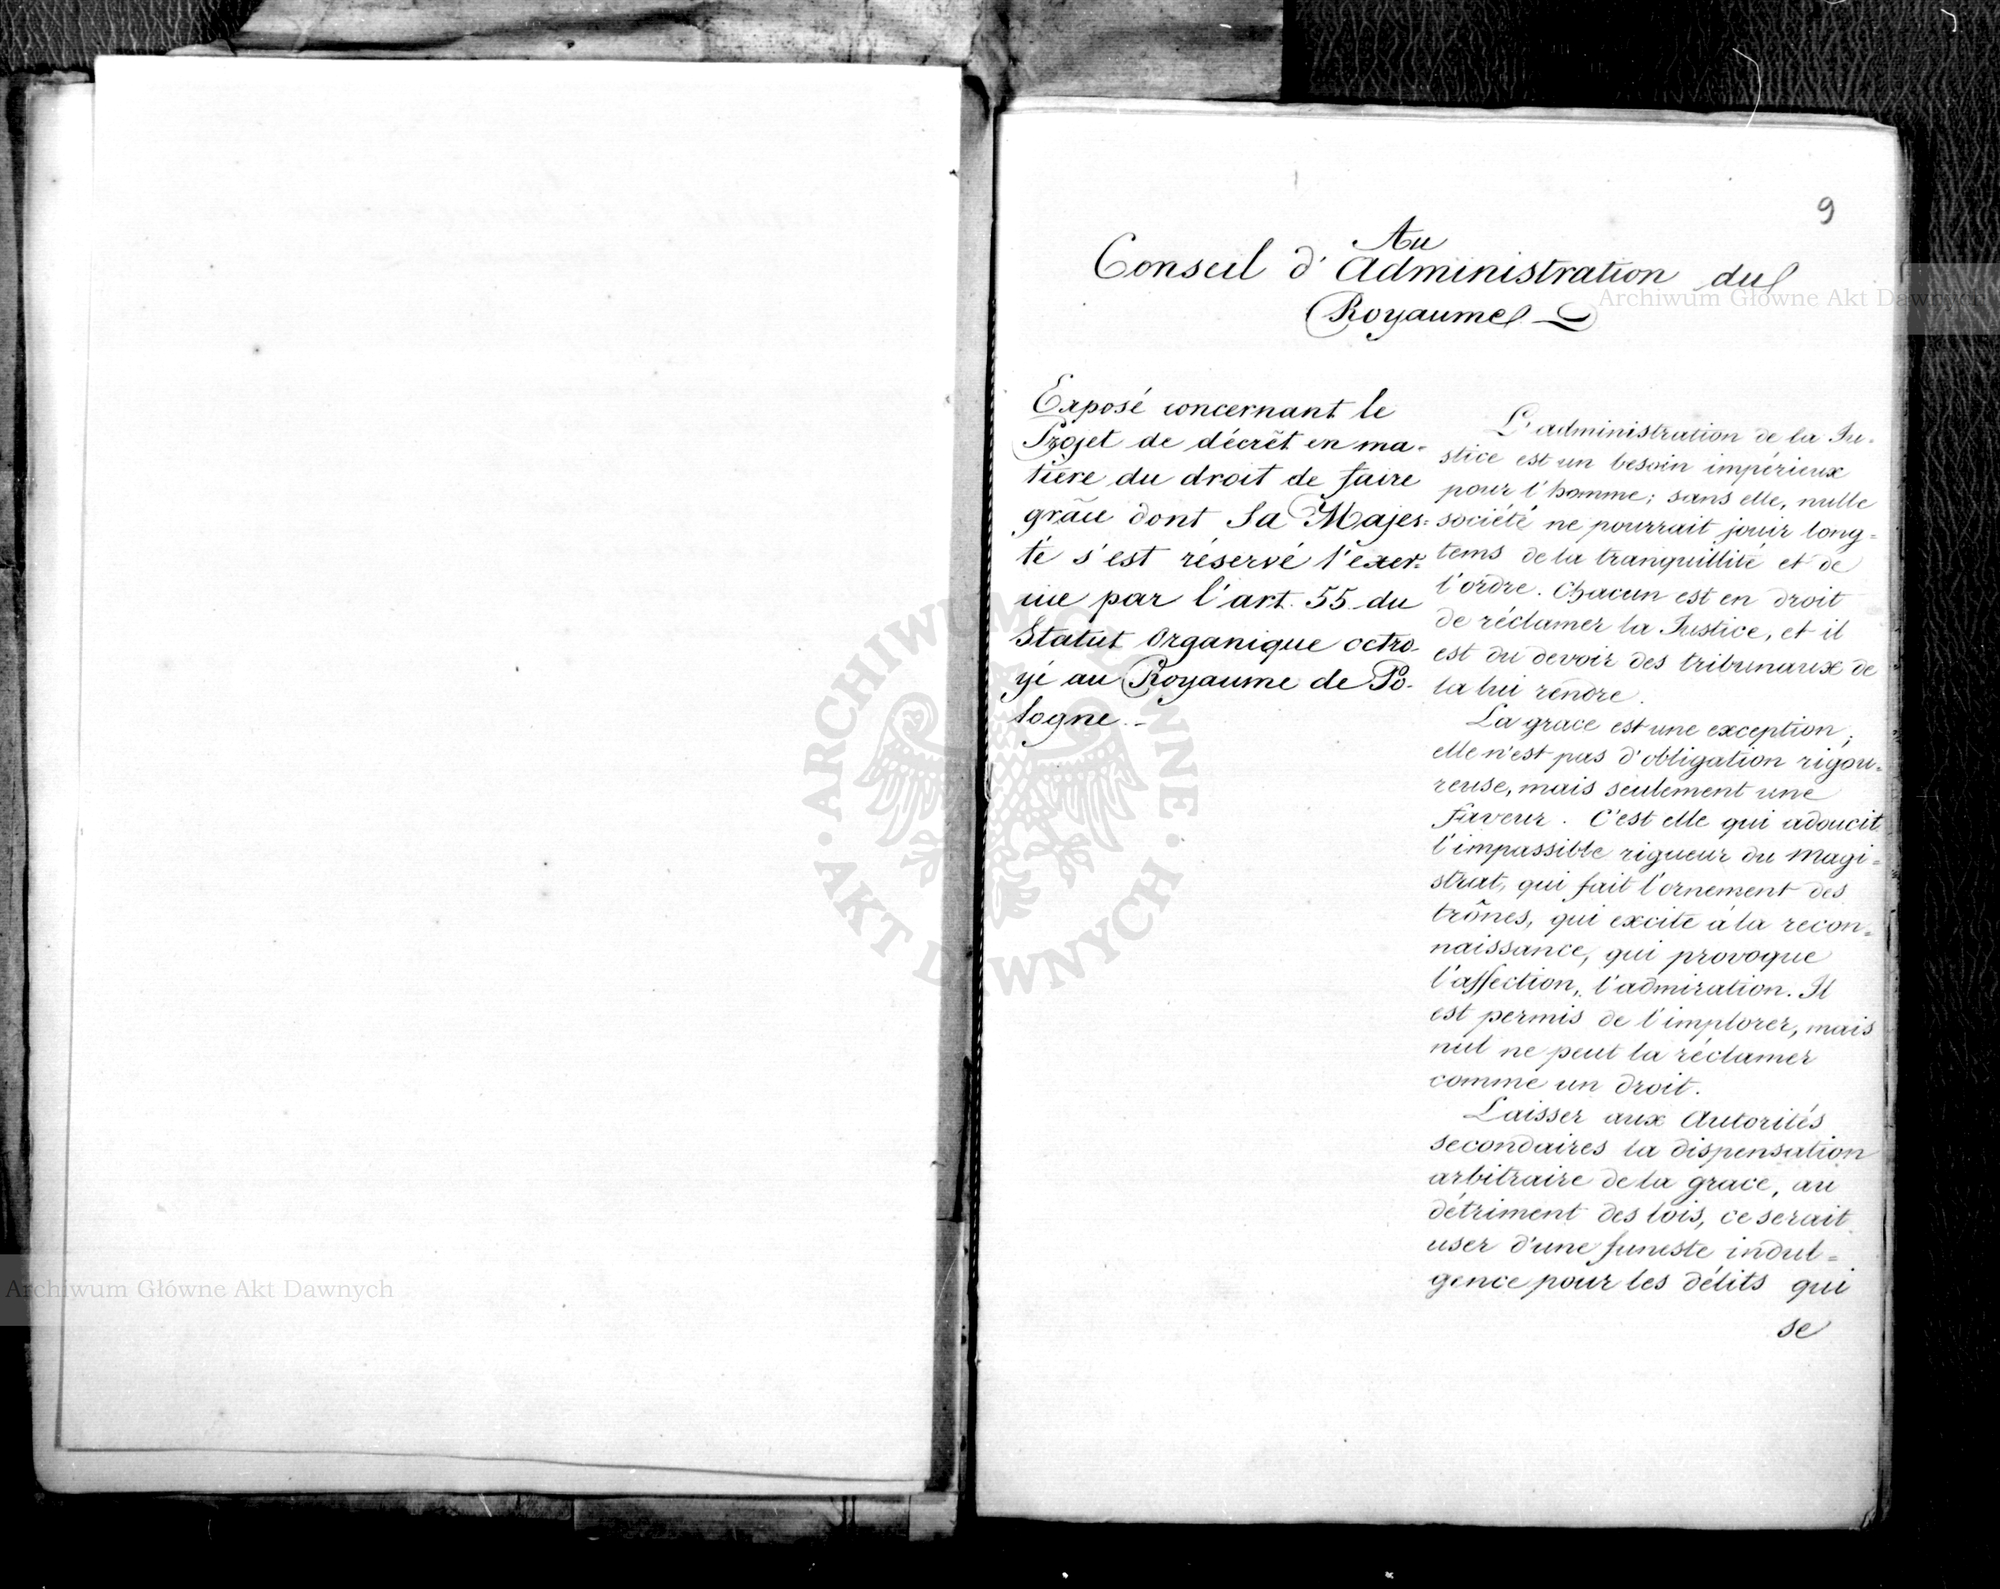 9
Au
Conseil d'Administration du
Royaume
Exposé concernant le
Projet de décrêt en ma-
tière du droit de faire
grâce dont Sa Majes-
té s'est réservé l'exer-
cice par l'art. 55 du
Statut Organique octro-
yé au Royaume de Po-
logne. -
L'administration de la Ju-
stice est un besoin impérieux
pour l'homme; sans elle, nulle
société ne pourrait jouir long-
tems de la tranquillité et de
l'ordre. Chacun est en droit
de réclamer la Justice, et il
est du devoir des tribunaux de
la lui rendre.
La grace est une exception;
elle n'est pas d'obligation rigou-
reuse, mais seulement une
faveur. C'est elle qui adoucit
l'impassible rigueur du Magi-
strat, qui fait l'ornement des
trônes, qui excite à la recon-
naissance, qui provoque
l'affection, l'admiration. Il
est permis de l'implorer, mais
nul ne peut la réclamer
comme un droit.
Laisser aux Autorités
secondaires la dispensation
arbitraire de la grace, au
détriment des lois, ce serait
user d'une funeste indul-
gence pour les délits qui
se
Archiwum Główne Akt Dawnych
Archiwum Główne Akt Dawnych
ARCHIWUM GŁÓWNE · AKT DAWNYCH ·